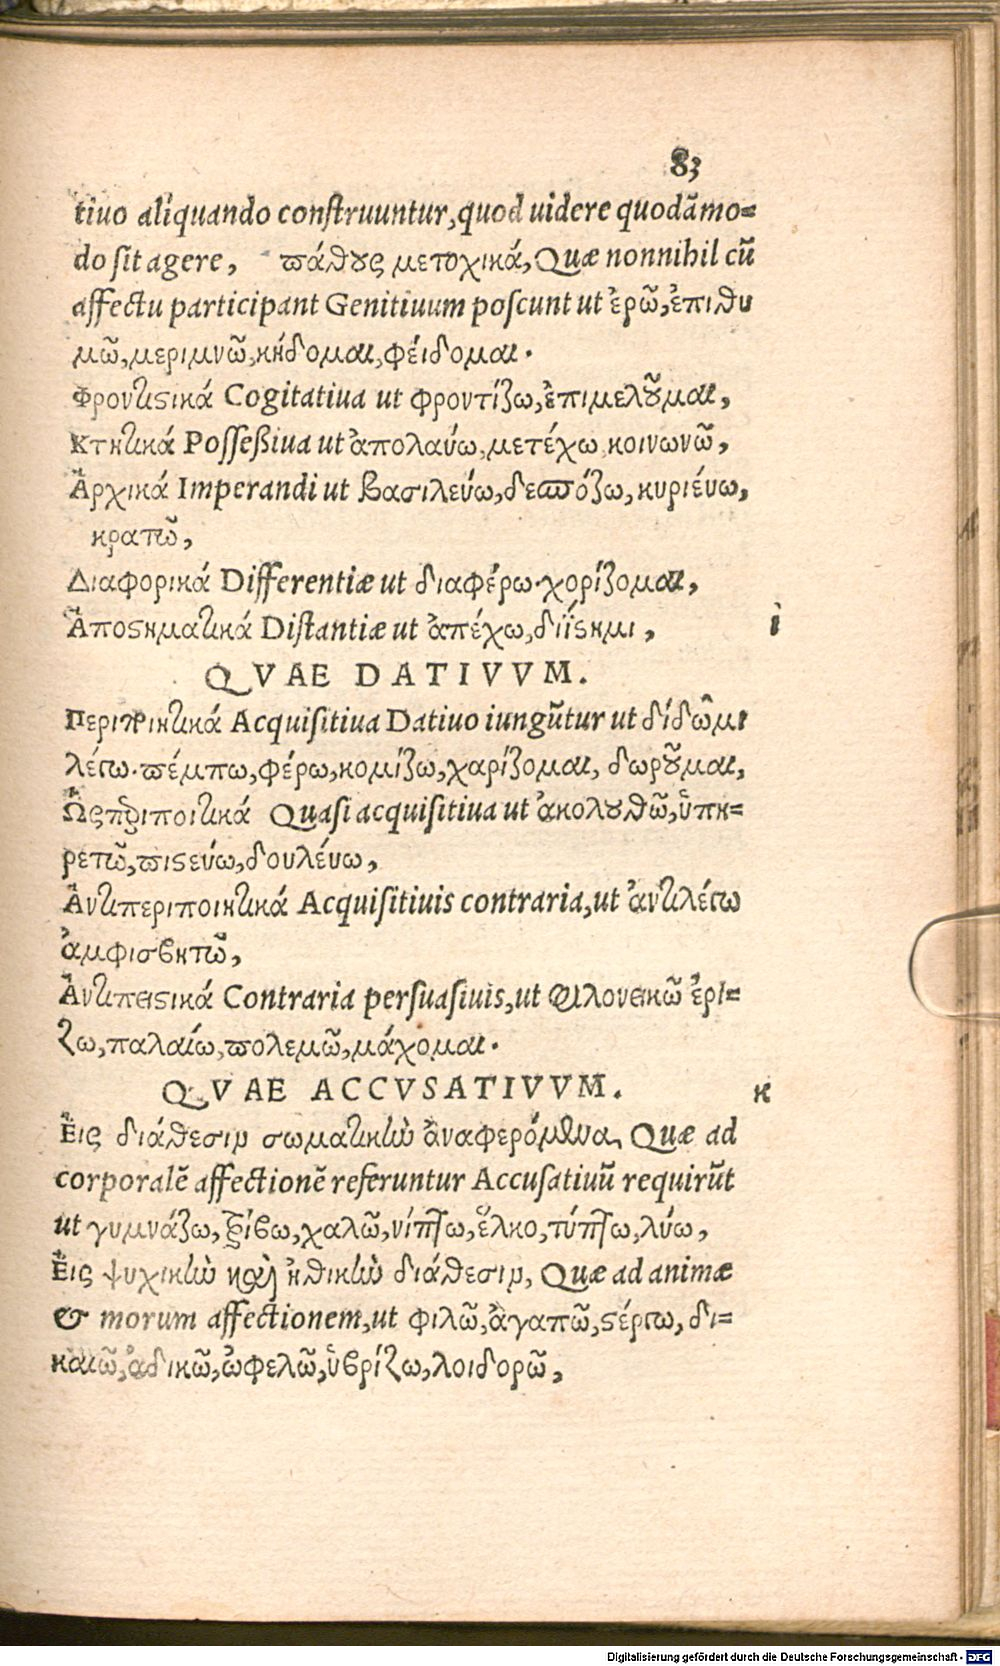 83
tiuo aliquando construuntur, quod uidere quodāmo=
do sit agere, πάθους μετοχικά, Quæ nonnihil cū
affectu participant Genitiuum poscunt ut ἐρῶ, ἐπιθυ
μῶ, μεριμνῶ, κήδομαι, φείδομαι.
Φροντιστικά Cogitatiua ut φροντίζω, ἐπιμελοῦμαι,
Κτητικά Possessiua ut ἀπολαύω, μετέχω κοινωνῶ,
Ἀρχικά Imperandi ut βασιλεύω, δεσπόζω, κυριέυω,
κρατῶ,
Διαφορικά Differentiæ ut διαφέρω. χορίζομαι,
Ἀποστηματικά Distantiæ ut ἀπέχω, διΐστημι, i
QVAE DATIVVM.
Acquisitiua Datiuo iungūtur ut δίδωμι
λέγω. πέμπω, φέρω, κομίζω, χαρίζομαι, δωροῦμαι,
Ὡσπεριποιτικά Quasi acquisitiua ut ἀκολουθῶ, ὑπη=
ρετῶ, πιστεύω, δουλέυω,
Ἀντιπεριποιητικά Acquisitiuis contraria, ut ἀντιλέγω
ἀμφισβητῶ,
Ἀντιπειστικά Contraria persuasiuis, ut φιλονεικῶ ἐρί=
ζω, παλαίω, πολεμῶ, μάχομαι.
QVAE ACCVSATIVVM. κ
Ἐις διάθεσιν σωματικὴν ἀναφερόμενα, Quæ ad
corporalē affectionē referuntur Accusatiuū requirūt
ut γυμνάζω, τρίβω, χαλῶ, νίπτω, ἕλκο, τύπτω, λύω,
Ἐις ψυχικὴν καὶ ἠθικὴν διάθεσιν, Quæ ad animæ
& morum affectionem, ut φιλῶ, ἀγαπῶ, στέργω, δι=
καιῶ, ἀδικῶ, ὠφελῶ, ὑβρίζω, λοιδορῶ,
Digitalisierung gefördert durch die Deutsche Forschungsgemeinschaft - DFG